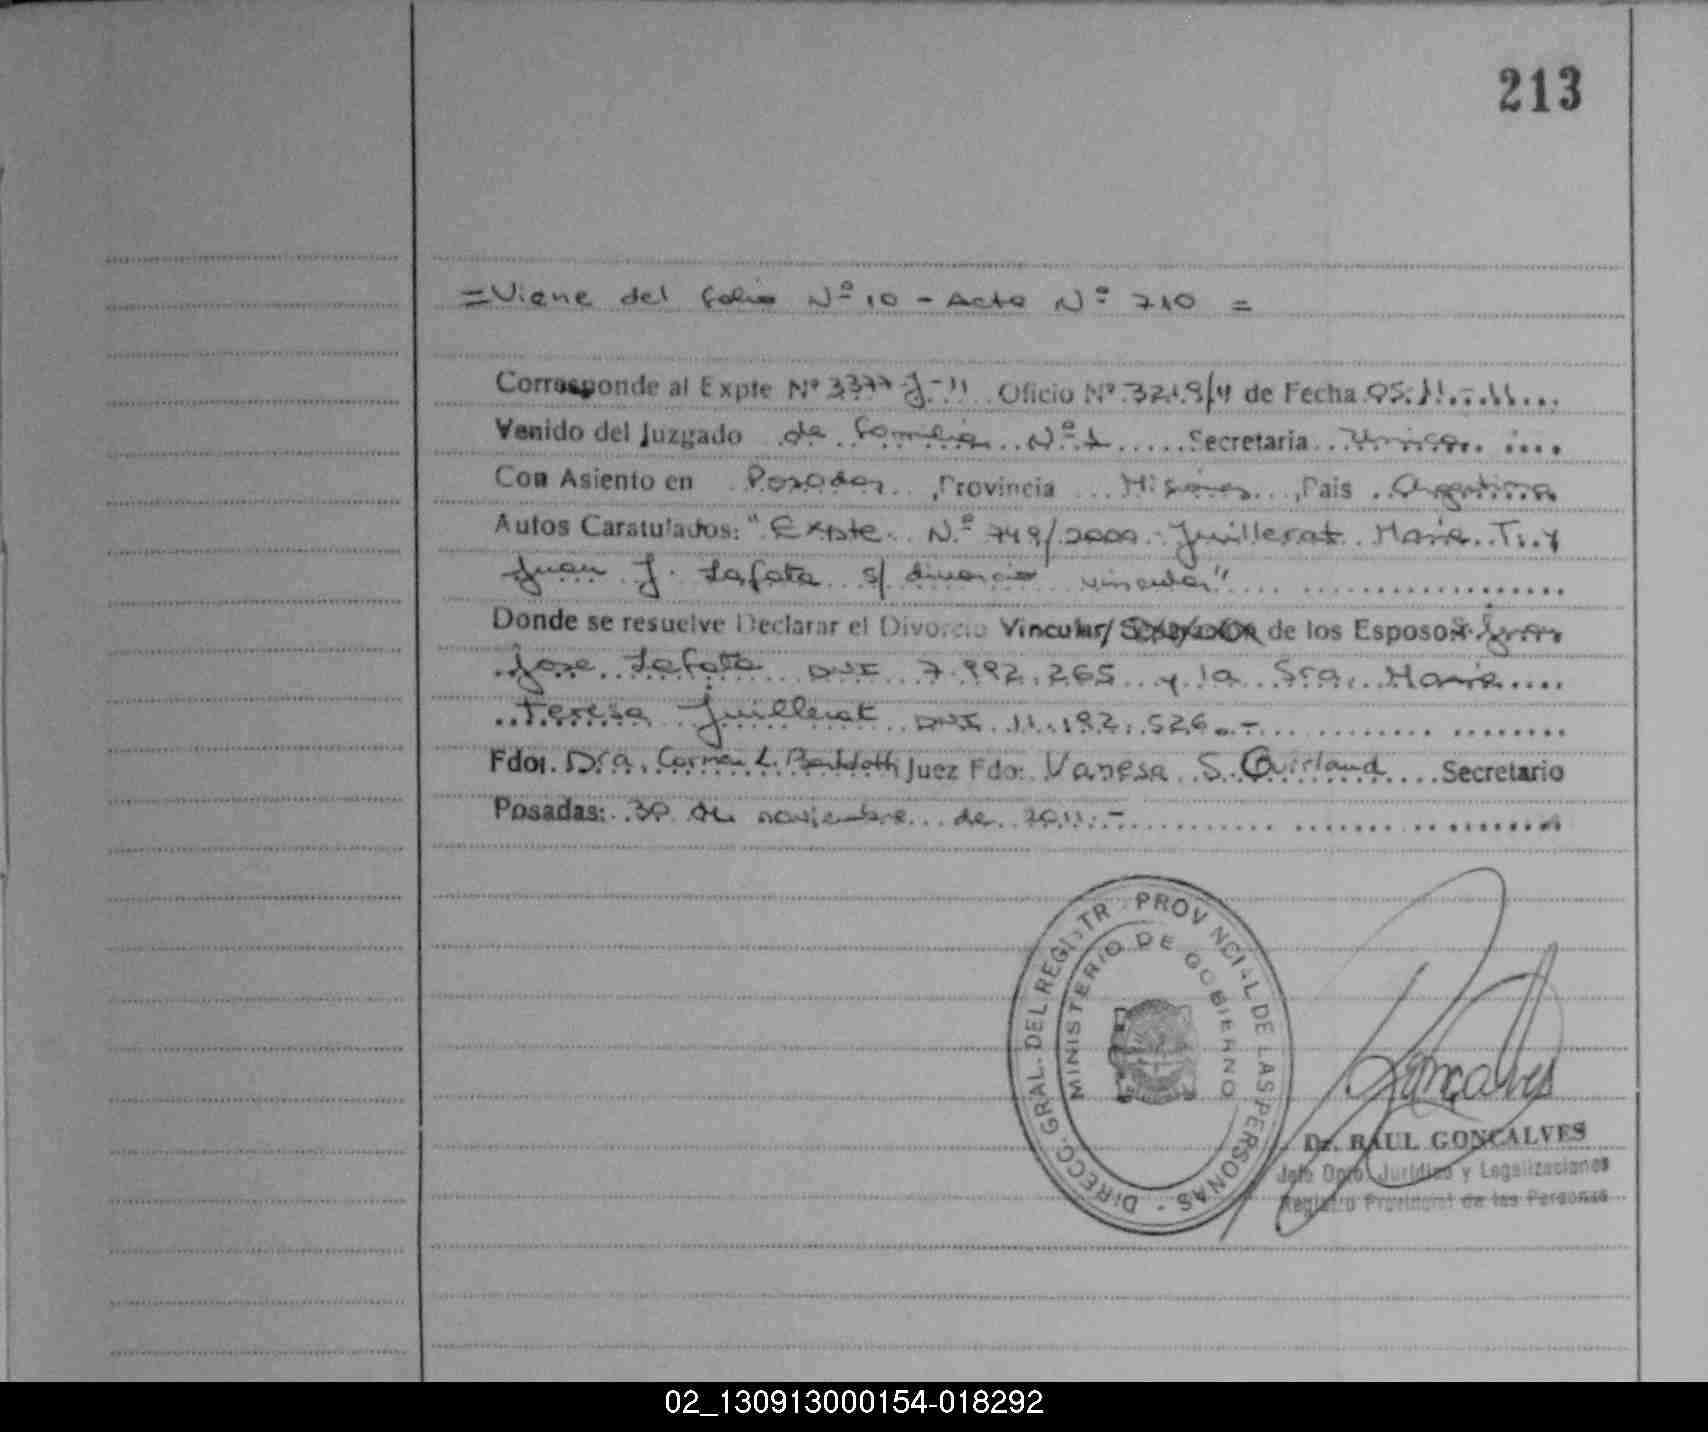 213
=Viene del folio Nº 10 - Acta Nº 710 =
Corresponde al Expte Nº 3377-J-11 Oficio Nº 3219/11 de Fecha 05.11.-.11...
Venido del Juzgado de Familia Nº 1 Secretaria Unica
Con Asiento en Posadas, Provincia Misiones, Pais Argentina
Autos Caratulados: "Expte. Nº 749/2000 - Juillerat Maria T. y
Juan J. Lafata s/ divorcio vincular"
Donde se resuelve Declarar el Divorcio Vincular/ de los Esposos Juan
Jose Lafata DNI 7.992.265 y la Sra. Maria
Teresa Juillerat DNI 11.192.526.-
Fdo. Dra. Carmen L. Juez Fdo: Vanesa S. Secretario
Posadas: 30 de noviembre de 2011.-
DIRECC. GRAL. DEL REGISTR PROVINCIAL DE LAS PERSONAS -
MINISTERIO DE GOBIERNO
Goncalves
Dr. RAUL GONCALVES
Jefe Dpto. Jurídico y Legalizaciones
Registro Provincial de las Personas
02_130913000154-018292